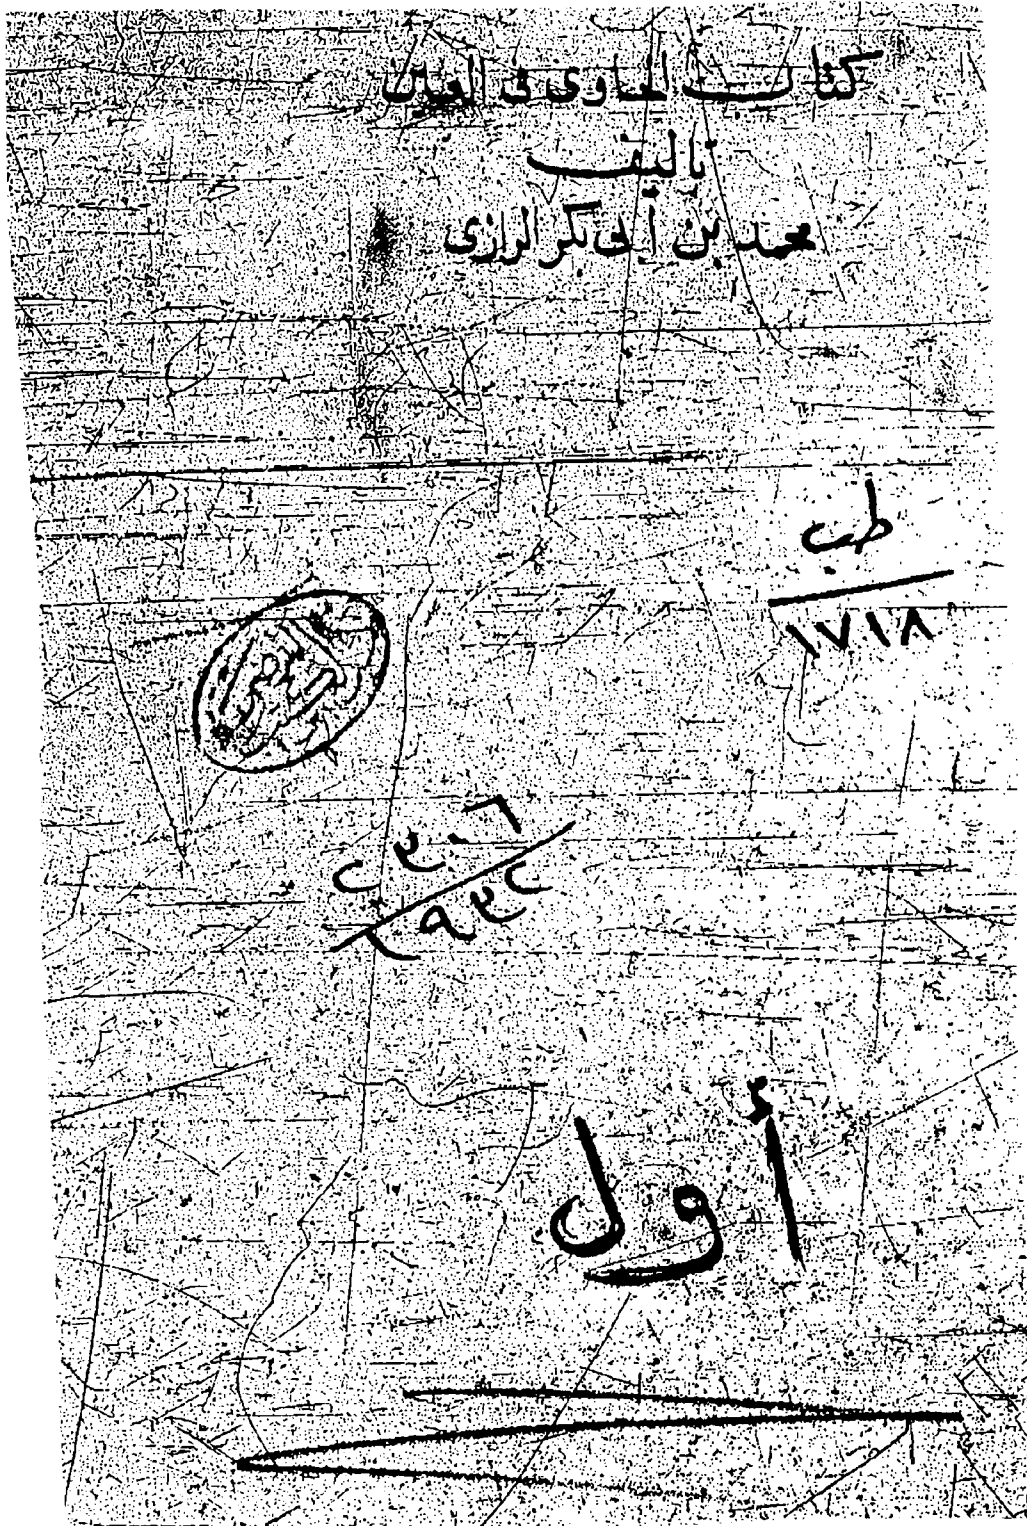 كتاب الحاوى فى العين
تاليف
محمد بن أبى بكر الرازى
طب
١٧١٨
أول